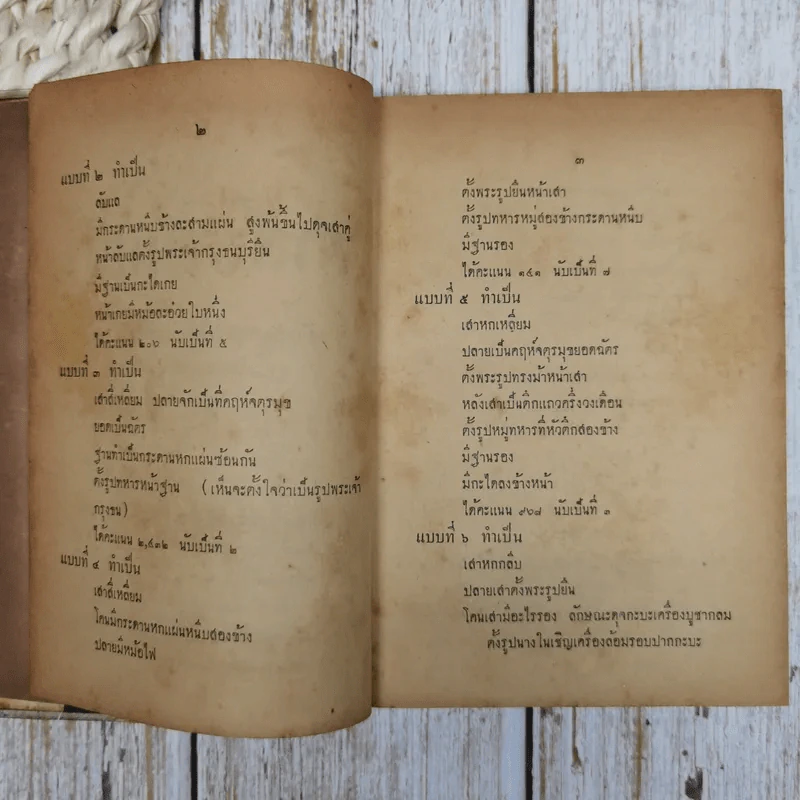 ๒
แบบที่ ๒ ทำเป็น
ลับแล
มีกระดานหนีบข้างละสามแผ่น สูงพ้นขึ้นไปดุจเสาคู่
หน้าลับแลตั้งรูปพระเจ้ากรุงธนบุรียืน
มีฐานเป็นกะไดเกย
หน้าเกยมีหม้อละอ่วยใบหนึ่ง
ได้คะแนน ๒๐๖ นับเป็นที่ ๕
แบบที่ ๓ ทำเป็น
เสาสี่เหลี่ยม ปลายจักเป็นที่คฤห์จตุรมุข
ยอดเป็นฉัตร
ฐานทำเป็นกระดานหกแผ่นซ้อนกัน
ตั้งรูปทหารหน้าฐาน (เห็นจะตั้งใจว่าเป็นรูปพระเจ้า
กรุงธน)
ได้คะแนน ๒,๔๓๒ นับเป็นที่ ๒
แบบที่ ๔ ทำเป็น
เสาสี่เหลี่ยม
โคนมีกระดานหกแผ่นหนีบสองข้าง
ปลายมีหม้อไฟ
๓
ตั้งพระรูปยืนหน้าเสา
ตั้งรูปทหารหมู่สองข้างกระดานหนีบ
มีฐานรอง
ได้คะแนน ๑๔๑ นับเป็นที่ ๗
แบบที่ ๕ ทำเป็น
เสาหกเหลี่ยม
ปลายเป็นคฤห์จตุรมุขยอดฉัตร
ตั้งพระรูปทรงม้าหน้าเสา
หลังเสาเป็นตึกแถวครึ่งวงเดือน
ตั้งรูปหมู่ทหารที่หัวตึกสองข้าง
มีฐานรอง
มีกะไดลงข้างหน้า
ได้คะแนน ๙๖๘ นับเป็นที่ ๓
แบบที่ ๖ ทำเป็น
เสาหกกลีบ
ปลายเสาตั้งพระรูปยืน
โคนเสามีอะไรรอง ลักษณะดุจกะบะเครื่องบูชากลม
ตั้งรูปนางในเชิญเครื่องล้อมรอบปากกะบะ